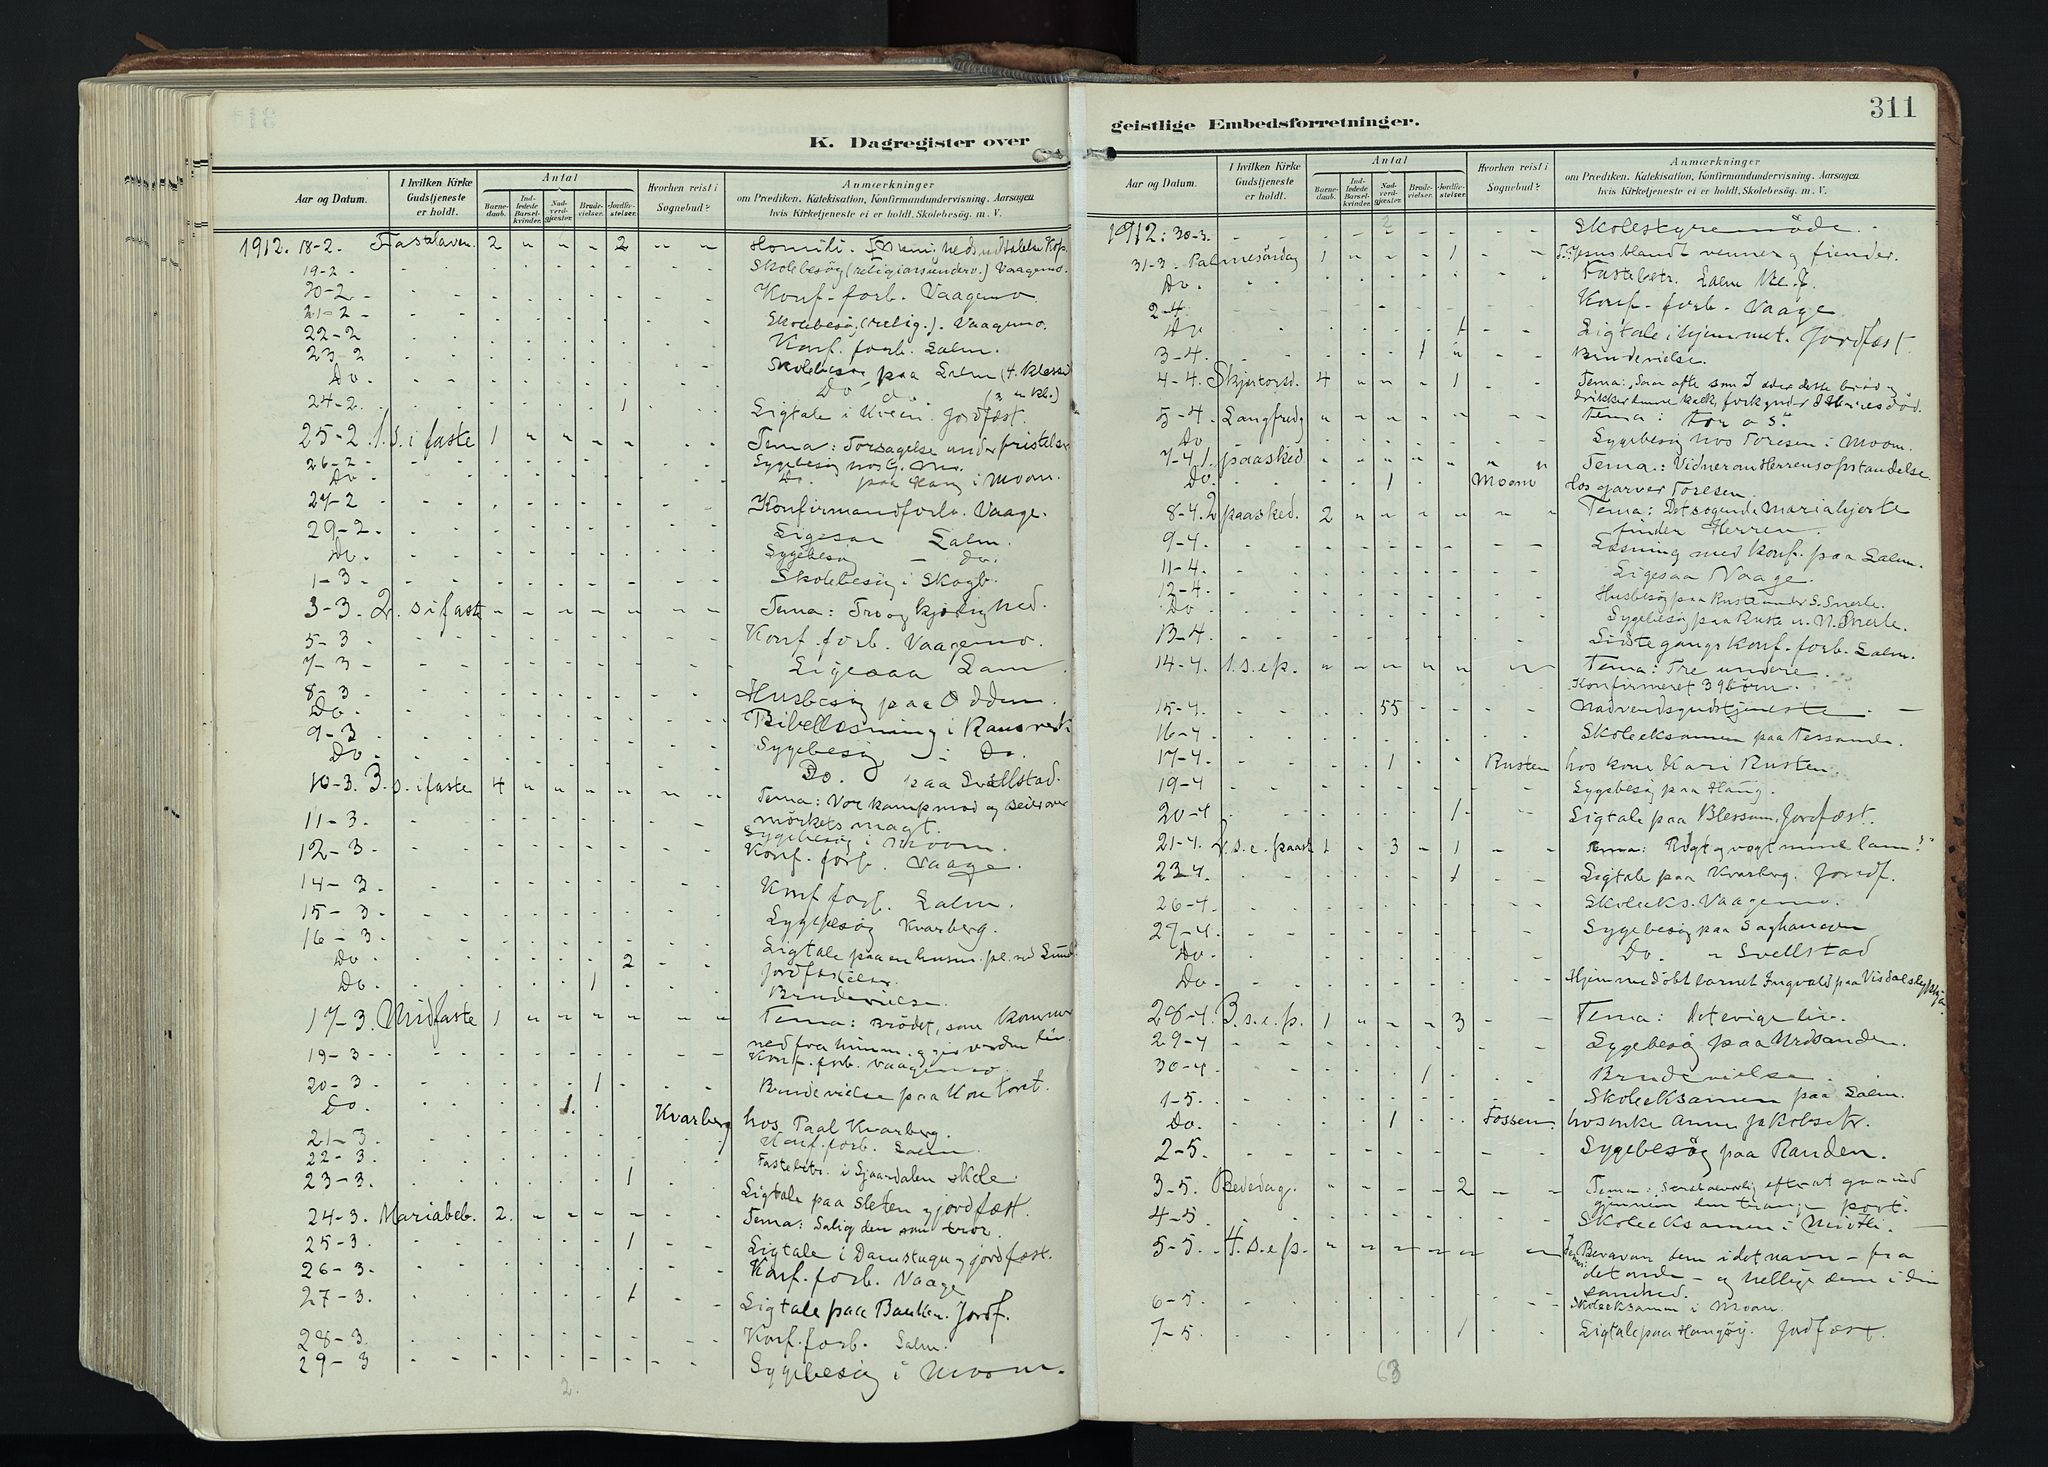 K. Dagregister over
Aar og Datum.
I hvilken Kirke Gudstjeneste er holdt.
Antal
Barnedaab.
Indledede Barselkvinder.
Nadverdgjester.
Brudevielser.
Jordfæstelser.
Hvorhen reist i Sognebud?
Anmærkninger
om Prædiken, Katekisation, Konfirmandundervisning, Aarsagen
hvis Kirketjeneste ei er holdt, Skolebesøg, m. V.
1912. 18-2. Fastelaven. 2 " " - 2 " "
19-2 Skolebesøg (religionsunderv.) Vaagemo.
20-2 Konf.-forb. Vaagemo.
21-2 Skolebesøg (relig.). Vaagemo.
22-2 Konf. forb. Lalm.
23-2 Skolebesøg paa Lalm (4. klasse)
Do. Do do.
24-2. 1 Ligtale i Kveen. Jordfæst.
25-2. 1. s. i faste 1 " " " " Tema: Forsagelse under fristelse
26-2 Sygebesøg hos
Do Do. paa Haug i Moom.
27-2 Konfirmandforb. Vaage.
29-2. Ligesaa Lalm.
Do. Sygebesøg — do.
1-3 - Skolebesøg i Skogb.
3-3. 2. s i faste Tema: Tro og kjærlighed.
5-3 Konf. forb. Vaagemo.
7-3 Ligesaa Lam
8-3 Husbesøg paa Odden.
Do. Bibellæsning i Randsverk
9-3 Sygebesøg i Do
Do. Do. paa Svellstad.
10-3. 3. s. i faste 4 " " " " Tema: Vor kampmod og seier over
mørkets magt.
11-3. Sygebesøg i Moom.
12-3 Konf. forb. Vaage.
14-3. Konf forb. Lalm.
15-3. Sygebesøg Kvarberg.
16-3. 2 Ligtale paa en husm. pl. ved Sund.
Do Jordfæstelse.
Do. 1 Brudevielse.
17-3. Midfaste 1 " " " " Tema: Brødet, som kommer
ned fra himm. og gir verden liv.
19-3 Konf. forb. Vaagemo.
20-3 1 Brudevielse paa Kontoret.
Do. 1. Kvarberg hos Paal Kvarberg.
21-3 Konf. forb. Lalm.
22-3. Fastebetr. i Sjaardalen skole
23-3. 1 Ligtale paa Sleten og jordfæst.
24-3. Mariabeb. 2. - " " " Tema: Salig den som tror.
25-3. 1 Ligtale i Damstugu og jordfæst.
26-3. Konf. forb. Vaage
27-3. 1 Ligtale paa Bakken. Jordf.
28-3 Konf. forb. Lalm.
29-3 Sygebesøg i Moom.
2.
geistlige Embedsforretninger.
311
Aar og Datum.
I hvilken Kirke Gudstjeneste er holdt.
Antal
Barnedaab.
Indledede Barselkvinder.
Nadverdgjester.
Brudevielser.
Jordfæstelser.
Hvorhen reist i Sognebud?
Anmærkninger
om Prædiken, Katekisation, Konfirmandundervisning, Aarsagen
hvis Kirketjeneste ei er holdt, Skolebesøg, m. V.
1912: 30-3. Skolestyremøde
31-3. Palmesøndag 1 " " - 1 Jesus blandt venner og fiender.
Do. Fastebetr. Lalm
2-4 Konf.-forb. Vaage
Do 1 Ligtale i hjemmet. Jordfæst.
3-4. 1 " Brudevielse.
4-4. Skjærtorsd. 4 " " " 1 Tema: Saa ofte som I æder dette brød og
drikker denne kalk, forkynder I Herrens død.
5-4 Langfredg " " " " Tema: For os.
Do Sygebesøg hos Toresen i Moom.
7-4 1. paasked Tema: Vidner om Herrens opstandelse
Do. 1 Moom Hos garver Toresen.
8-4. 2 paasked. 2 " " " " Tema: Det søgende Mariahjerte
finder Herren.
9-4. Læsning med Konf. paa Lalm.
11-4. Ligesaa Vaage.
12-4 Husbesøg paa Ruste under S. Snerle.
Do Sygebesøg paa Ruste u. N. Snerle.
13-4. Sidste gangs Konf. forb. Lalm.
14-4. 1. s. e. p. " " " " " Tema: Tre undere
Konfirmeret 39 børn.
15-4. 55 Nadverdsgudstjeneste.
16-4 Skoleeksamen paa Tessanden.
17-4 1 Rusten hos kone Kari Rusten.
19-4 Sygebesøg paa Haug.
20-4 1. Ligtale paa Blessom. Jordfæst.
21-4. 2. s. e. paask 1 - 3 - 1 Tema: Røgt og vogt mine lam!"
23-4 1 Ligtale paa Kvarberg. Jordf.
26-4. Skoleeks. Vaagemo.
27-4. Sygebesøg paa
Do. Do. " Svellstad
Do. Hjemmedøbt barnet Ingvald paa
28-4. 3. s. e. p. 1 " - - 3 Tema: Det evige liv.
29-4 Sygebesøg paa Ursanden.
30-4 1 Brudevielse.
1-5. Skoleeksamen paa Lalm.
Do. 1 Fossen. hos enke Anne Jakobsetr.
2-5 Sygebesøg paa Randen.
3-5. Bededag. - - " - 2 Tema: Stræb alvorlig efter at gaa ind
gjennem den trange port.
4-5 Skoleeksamen i
5-5. 4. s. e. p. Tema: Bevar dem i det navn — fra
det onde — og hellige dem i din
sandhed.
6-5 Skoleeksamen i Moom.
7-5 1 Ligtale paa Haugøy. Jordfæst.
63